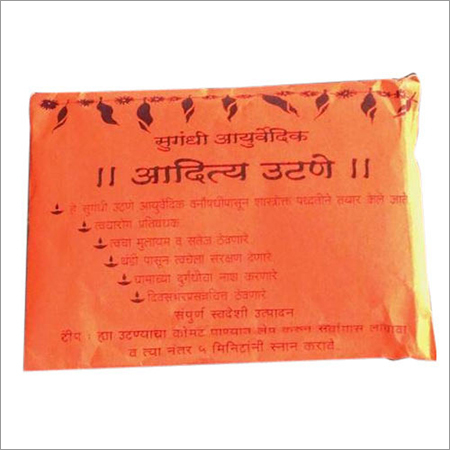 सुगंधी आयुर्वेदिक
|| आदित्य उटणे ||
हे सुगंधी उटणे आयुर्वेदिक वनौषधीपासून शास्त्रोक्त पध्दतीने तयार केले आहे
त्वचारोग प्रतिबंधक
त्वचा मुलायम व सतेज ठेवणारे
थंडी पासून त्वचेला संरक्षण देणारे
घामाच्या दुर्गंधीचा नाश करणारे
दिवसभर प्रसन्नचित्त ठेवणारे
संपुर्ण स्वदेशी उत्पादन
टीप : ह्या उटण्याचा कोमट पाण्यात लेप करून सर्वांगास लावावा
व त्या नंतर ५ मिनिटांनी स्नान करावे